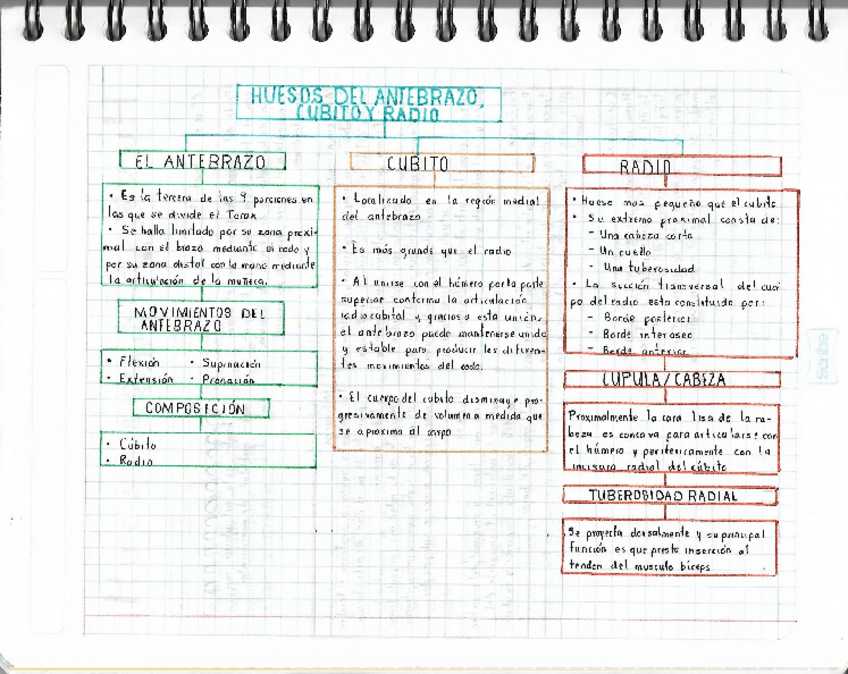 HUESOS DEL ANTEBRAZO,
CUBITO Y RADIO
EL ANTEBRAZO
• Es la tercera de las 4 porciones en
las que se divide el Torax
• Se halla limitado por su zona proxi-
mal con el brazo mediante el codo y
por su zona distal con la mano mediante
la articulación de la muñeca.
MOVIMIENTOS DEL
ANTEBRAZO
• Flexión • Supinación
• Extensión • Pronación
COMPOSICIÓN
• Cúbito
• Radio
CUBITO
• Localizado en la región medial
del antebrazo
• Es más grande que el radio
• Al unirse con el húmero por la parte
superior conforma la articulación
radiocubital y, gracias a esta unión,
el antebrazo puede mantenerse unido
y estable para producir los diferen-
tes movimientos del codo.
• El cuerpo del cubito disminuye pro-
gresivamente de volumen a medida que
se aproxima al carpo
RADIO
• Hueso mas pequeño que el cubito
• Su extremo proximal consta de:
- Una cabeza corta
- Un cuello
- Una tuberosidad
• La sección transversal del cuer
po del radio esta constituida por:
- Borde posterior
- Borde interoseo
- Borde anterior
CUPULA/CABEZA
Proximalmente la cara lisa de la ca-
beza es concava para articularse con
el húmero y perifericamente con la
incisura radial del cúbito
TUBEROSIDAD RADIAL
Se proyecta dorsalmente y su principal
función es que presta inserción al
tendon del musculo biceps
Scribe